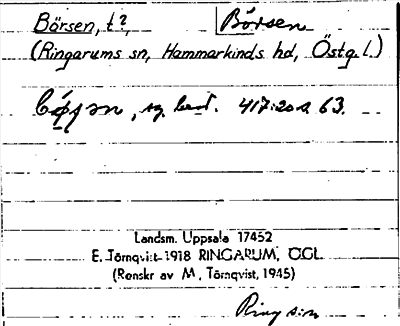 Börsen, t?, Börsen
(Ringarums sn, Hammarkinds hd, Östg.l.)
sg. best. 417:20 s. 63.
Landsm. Uppsala 17452
E. Törnqvist 1918 RINGARUM, ÖGL.
(Renskr av M. Törnqvist, 1945)
Ring sn